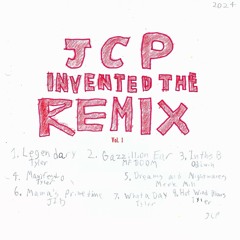 2024
JCP
INVENTED THE
REMIX
Vol. 1
1. Legendary 2. Gazzillion Ear 3. In the B
Tyler MF DOOM
4. Manifesto 5. Dreams and Nightmares
Tyler Meek Mill
6. Mama's Primetime 7. What A Day 8. Hot Wind Blows
JID Tyler Tyler
JCP